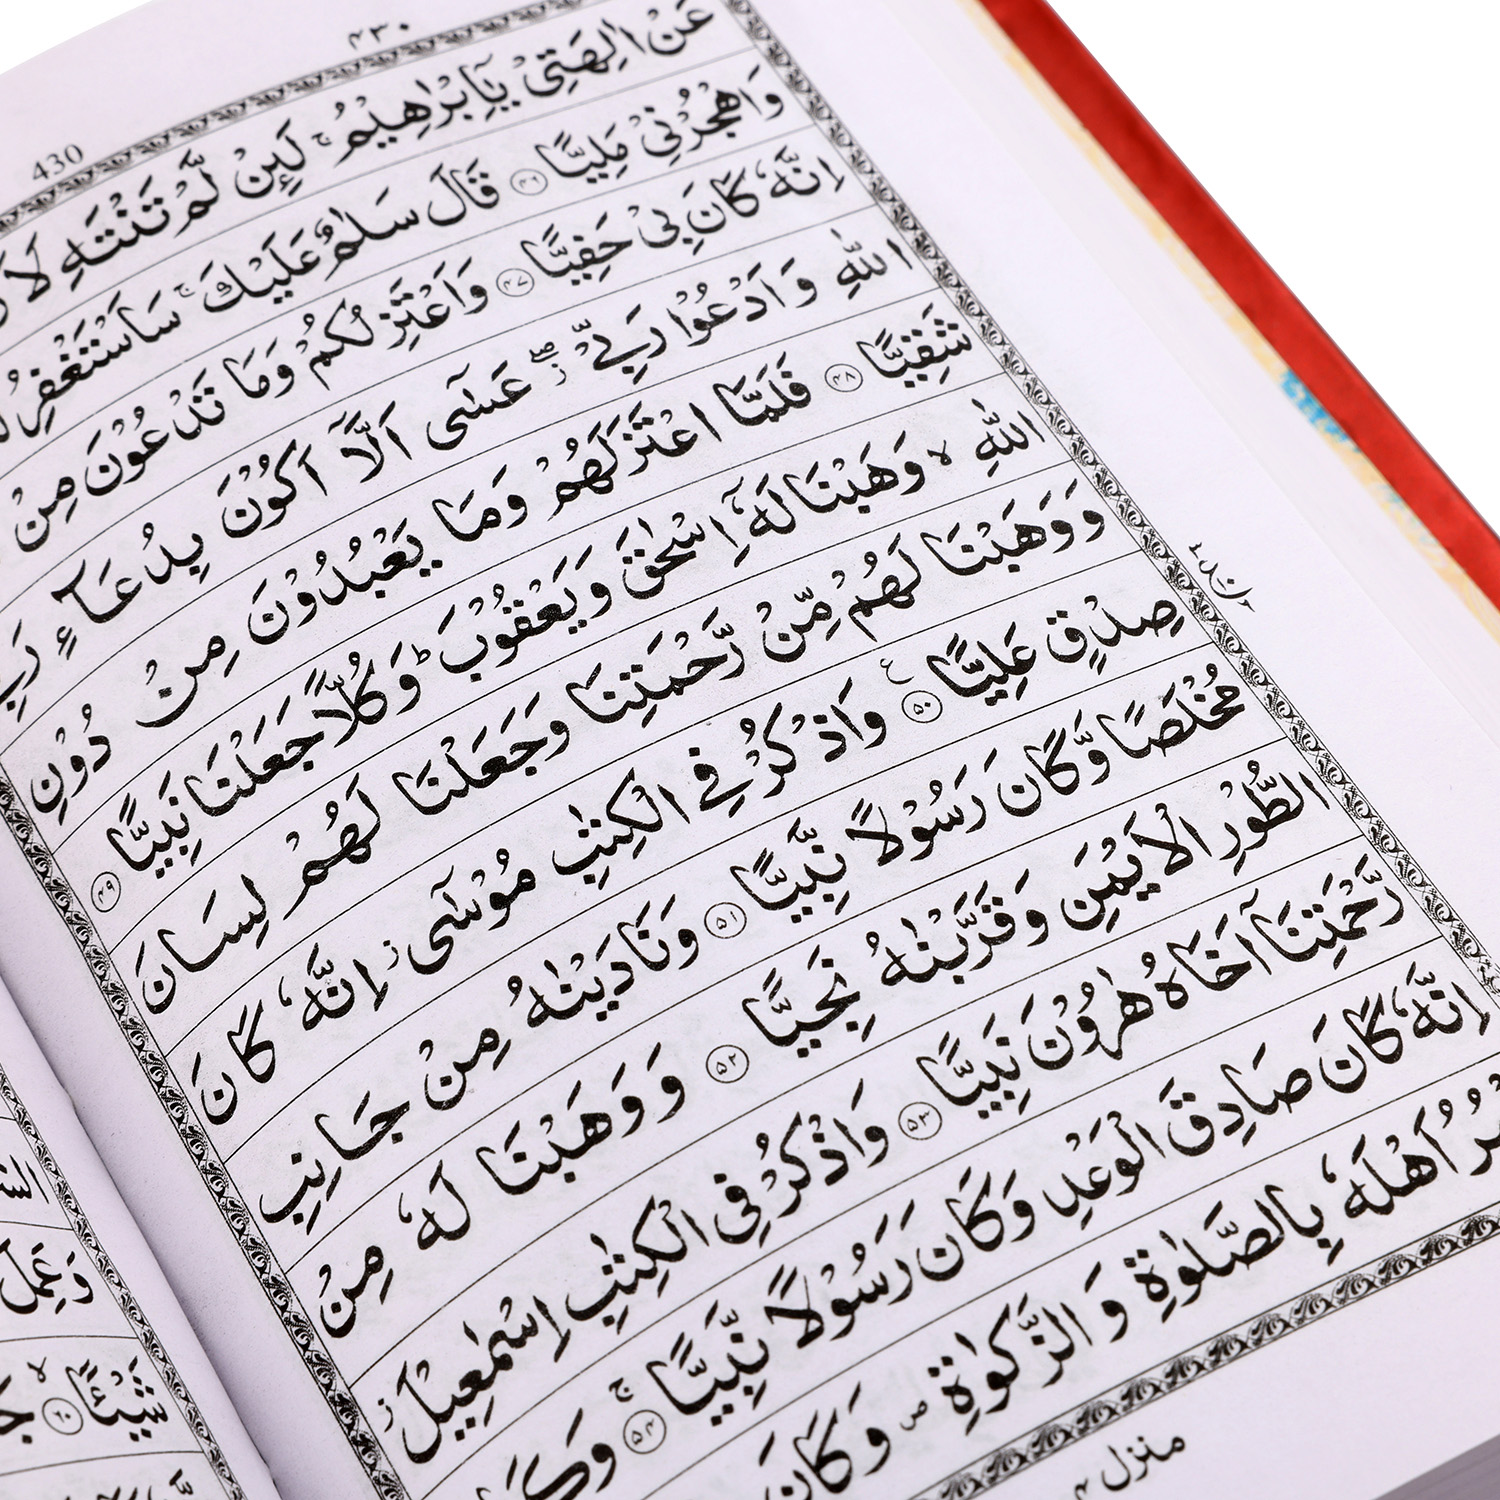 ۴۳۰
430
عَنْ اٰلِهَتِیْ یٰۤاِبْرٰهِیْمُ ۚ لَىِٕنْ لَّمْ تَنْتَهِ
وَاهْجُرْنِیْ مَلِیًّا ۴۶ قَالَ سَلٰمٌ عَلَیْكَ ۚ سَاَسْتَغْفِرُ
اِنَّهٗ كَانَ بِیْ حَفِیًّا ۴۷ وَاَعْتَزِلُكُمْ وَمَا تَدْعُوْنَ مِنْ
اللّٰهِ وَاَدْعُوْا رَبِّیْ ۖؗ عَسٰۤی اَلَّاۤ اَكُوْنَ بِدُعَآءِ
شَقِیًّا ۴۸ فَلَمَّا اعْتَزَلَهُمْ وَمَا یَعْبُدُوْنَ مِنْ دُوْنِ
اللّٰهِ ۙ وَهَبْنَا لَهٗۤ اِسْحٰقَ وَیَعْقُوْبَ ؕ وَكُلًّا جَعَلْنَا نَبِیًّا ۴۹
وَوَهَبْنَا لَهُمْ مِّنْ رَّحْمَتِنَا وَجَعَلْنَا لَهُمْ لِسَانَ
صِدْقٍ عَلِیًّا ۵۰ ع وَاذْكُرْ فِی الْكِتٰبِ مُوْسٰۤی ؗ اِنَّهٗ كَانَ
مُخْلَصًا وَّكَانَ رَسُوْلًا نَّبِیًّا ۵۱ وَنَادَیْنٰهُ مِنْ جَانِبِ
الطُّوْرِ الْاَیْمَنِ وَقَرَّبْنٰهُ نَجِیًّا ۵۲ وَوَهَبْنَا لَهٗ مِنْ
رَّحْمَتِنَاۤ اَخَاهُ هٰرُوْنَ نَبِیًّا ۵۳ وَاذْكُرْ فِی الْكِتٰبِ اِسْمٰعِیْلَ ؗ
اِنَّهٗ كَانَ صَادِقَ الْوَعْدِ وَكَانَ رَسُوْلًا نَّبِیًّا ۵۴ ۚ
اَهْلَهٗ بِالصَّلٰوةِ وَالزَّكٰوةِ ۪ وَكَانَ
منزل ۴
وَعَمِلَ
شَیْـًٔا ۶۰ ۙ